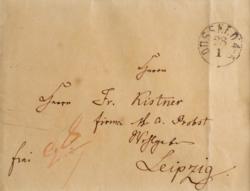 DÜSSELDORF
28
1
Herrn
Herrn Fr. Kistner
firma
Wohlgeb
frei Leipzig.